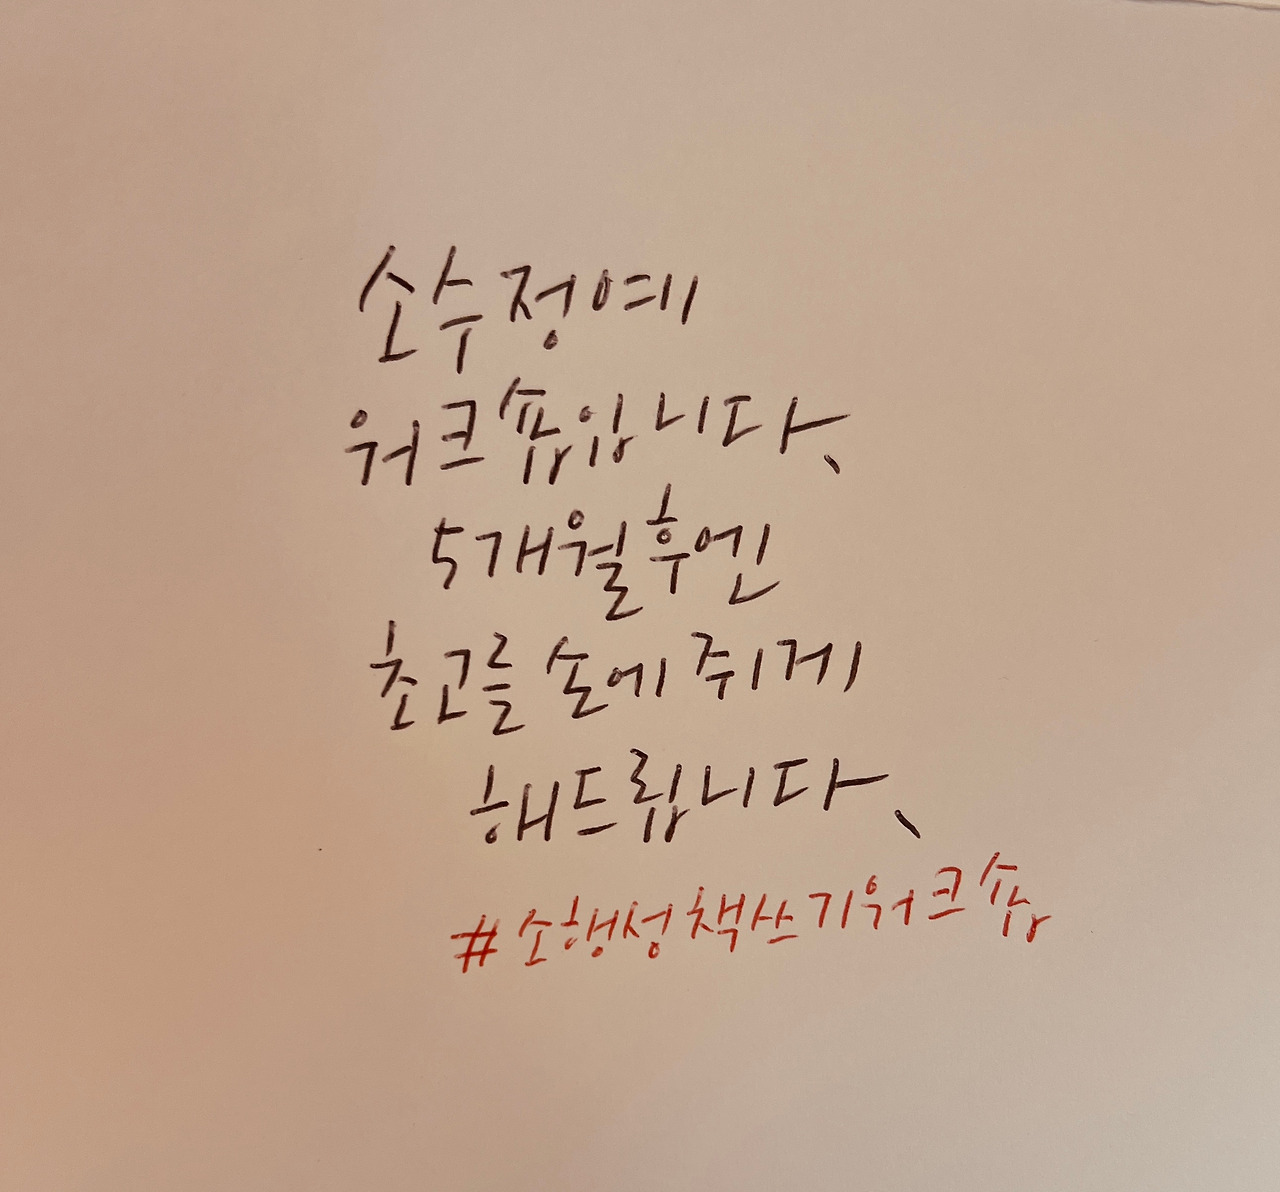 소수정예
워크숖입니다.
5개월후엔
초고를 손에 쥐게
해드립니다.
#소행성책쓰기워크숍